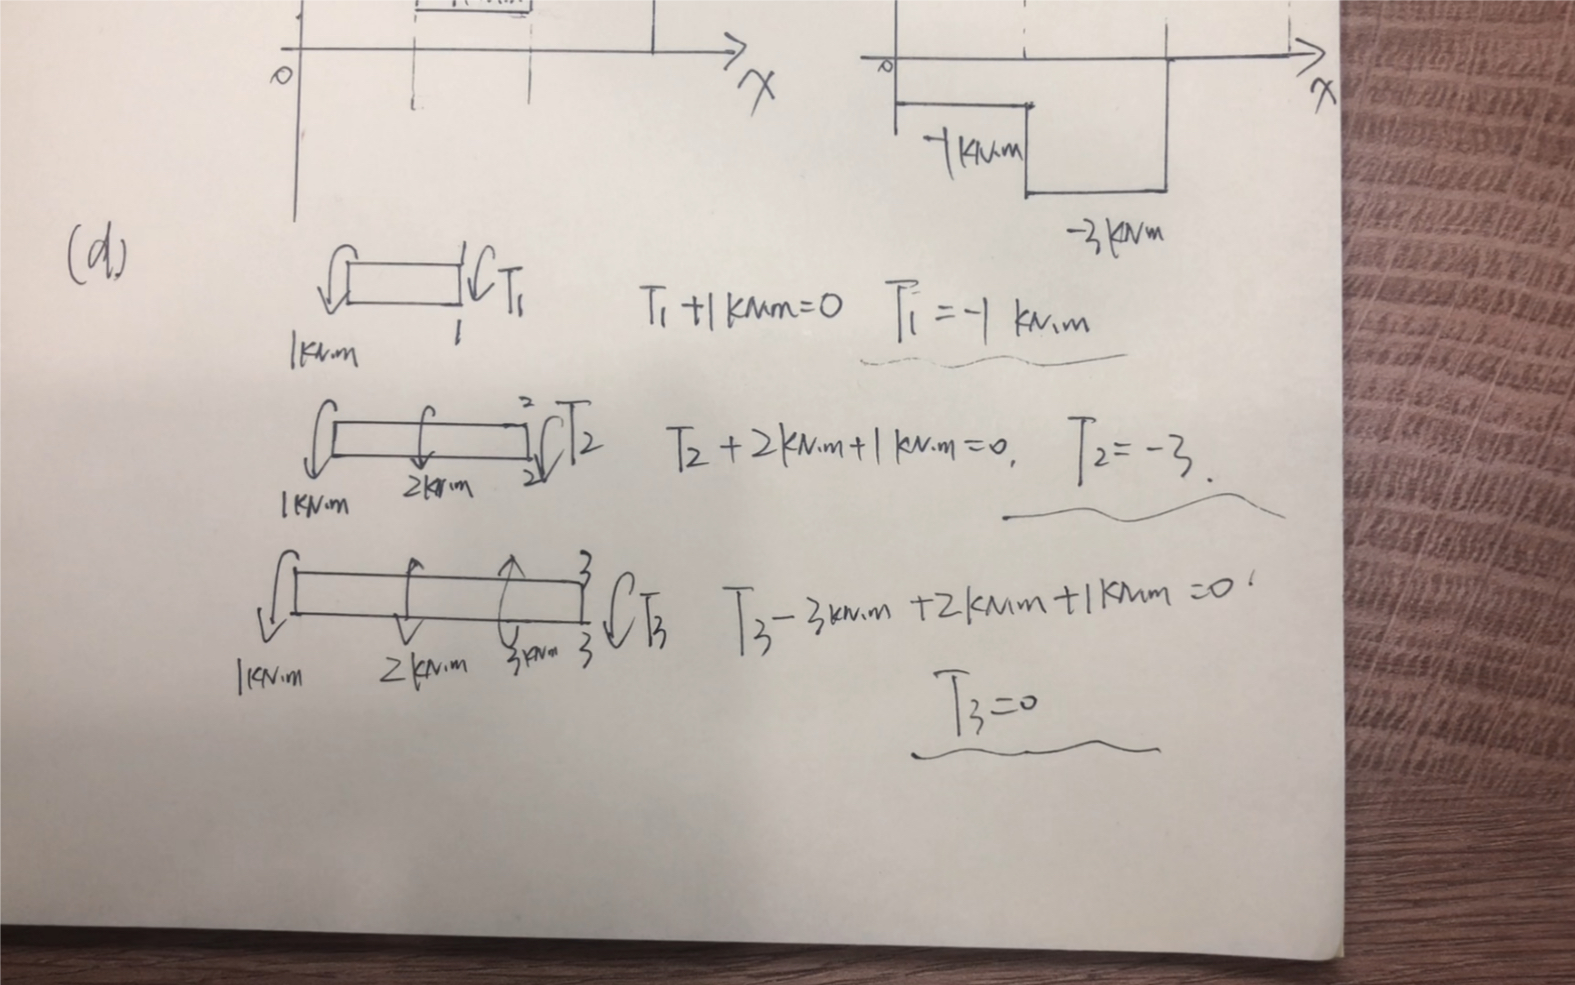 0
x
0
x
-1kN.m
-3kNm
(d)
1
T1
1
1kN.m
T1+1kNm=0 T1=-1 kN.m
2
T2
2
1kN.m 2kN.m
T2+2kN.m+1kN.m=0. T2=-3.
3
T3
3
1kN.m 2kN.m 3kNm
T3-3kN.m+2kNm+1kNm=0
T3=0